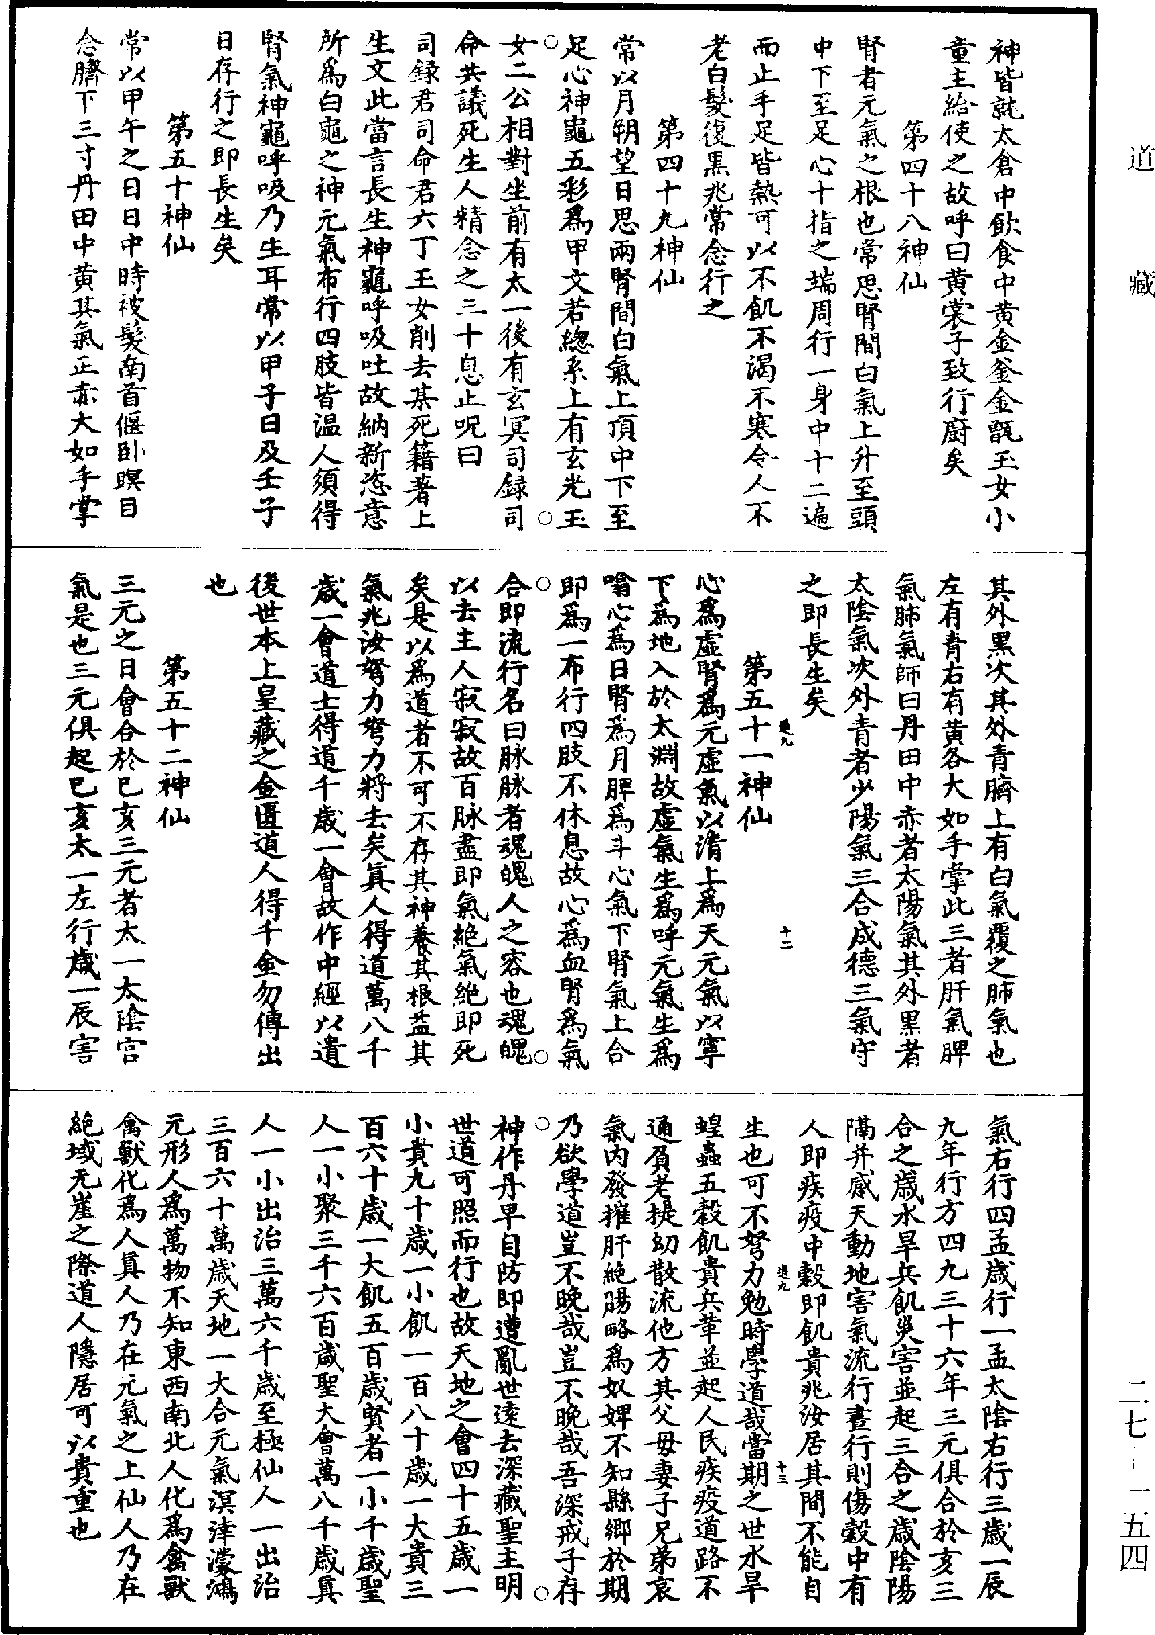 道藏
二七-一五四
神皆就太倉中飲食中黃金釜金甑玉女小
童主給使之故呼曰黃裳子致行廚矣
第四十八神仙
腎者元氣之根也常思腎間白氣上升至頭
中下至足心十指之端周行一身中十二遍
而止手足皆熱可以不飢不渴不寒令人不
老白髮復黑兆常念行之
第四十九神仙
常以月朔望日思兩腎間白氣上頂中下至
足心神龜五彩為甲文若緫系上有玄光玉
女二公相對坐前有太一後有玄冥司録司
命共議死生人精念之三十息止呪曰
司録君司命君六丁玉女削去某死籍著上
生文此當言長生神龜呼吸吐故納新恣意
所為白龜之神元氣布行四肢皆温人須得
腎氣神龜呼吸乃生耳常以甲子日及壬子
日存行之即長生矣
第五十神仙
常以甲午之日日中時被髮南首偃卧瞑目
念臍下三寸丹田中黃其氣正赤大如手掌
其外黑次其外青臍上有白氣覆之肺氣也
左有青右有黃各大如手掌此三者肝氣脾
氣肺氣師曰丹田中赤者太陽氣其外黑者
太陰氣次外青者少陽氣三合成德三氣守
之即長生矣
退九
十二
第五十一神仙
心為虛腎為元虛氣以清上為天元氣以寧
下為地入於太淵故虛氣生為呼元氣生為
噏心為日腎為月脾為斗心氣下腎氣上合
即為一布行四肢不休息故心為血腎為氣
合即流行名曰脉脉者魂魄人之容也魂魄
以去主人寂寂故百脉盡即氣絶氣絶即死
矣是以為道者不可不存其神養其根益其
氣兆汝努力努力將去矣真人得道萬八千
歲一會道士得道千歲一會故作中經以遺
後世本上皇藏之金匱道人得千金勿傳出
也
第五十二神仙
三元之日會合於巳亥三元者太一太陰宫
氣是也三元俱起巳亥太一左行歲一辰害
氣右行四孟歲行一孟太陰右行三歲一辰
九年行方四九三十六年三元俱合於亥三
合之歲水旱兵飢災害並起三合之歲陰陽
隔并感天動地害氣流行晝行則傷穀中有
人即疾疫中穀即飢貴兆汝居其間不能自
退九
十三
生也可不努力勉時學道哉當期之世水旱
蝗蟲五穀飢貴兵革並起人民疾疫道路不
通負老提幼散流他方其父母妻子兄弟哀
氣内發摧肝絶腸略為奴婢不知縣鄉於期
乃欲學道豈不晚哉豈不晚哉吾深戒子存
神作丹早自防即遭亂世遠去深藏聖主明
世道可照而行也故天地之會四十五歲一
小貴九十歲一小飢一百八十歲一大貴三
百六十歲一大飢五百歲賢者一小千歲聖
人一小聚三千六百歲聖大會萬八千歲真
人一小出治三萬六千歲至極仙人一出治
三百六十萬歲天地一大合元氣溟涬濛鴻
元形人為萬物不知東西南北人化為禽獸
禽獸化為人真人乃在元氣之上仙人乃在
絶域无崖之際道人隱居可以貴重也